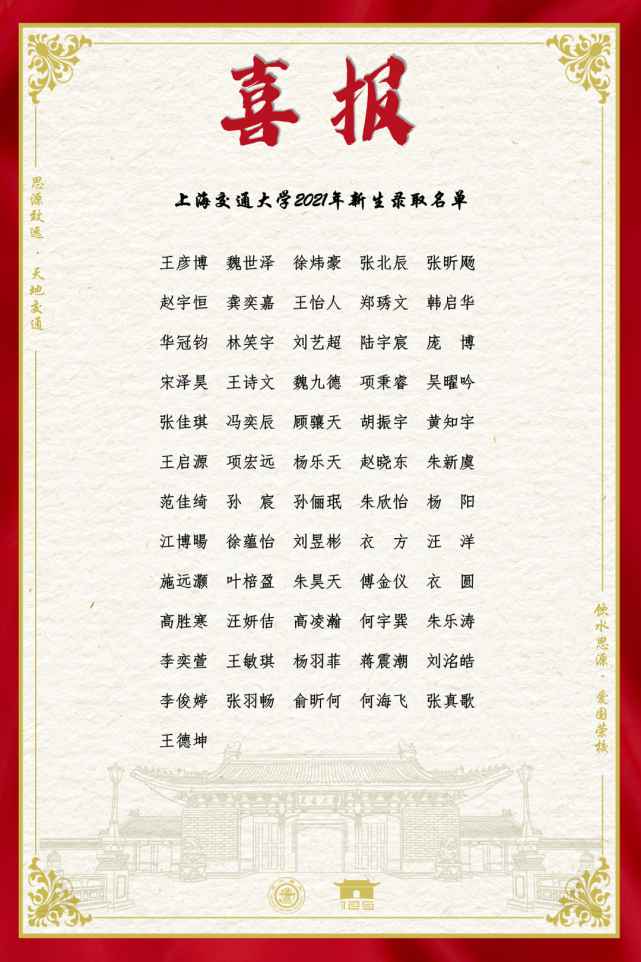 喜报
上海交通大学2021年新生录取名单
思源致远·天地交通
王彦博 魏世泽 徐炜豪 张北辰 张昕飏
赵宇恒 龚奕嘉 王怡人 郑琇文 韩启华
华冠钧 林笑宇 刘艺超 陆宇宸 庞 博
宋泽昊 王诗文 魏九德 项秉睿 吴曜吟
张佳琪 冯奕辰 顾骧天 胡振宇 黄知宇
王启源 项宏远 杨乐天 赵晓东 朱新虞
范佳绮 孙 宸 孙俪珉 朱欣怡 杨 阳
江博暘 徐蕴怡 刘昱彬 衣 方 汪 洋
施远灏 叶棓盈 朱昊天 傅金仪 衣 圆
高胜寒 汪妍佶 高凌瀚 何宇巽 朱乐涛
李奕萱 王敏琪 杨羽菲 蒋震潮 刘洺皓
李俊婷 张羽畅 俞昕何 何海飞 张真歌
王德坤
饮水思源·爱国荣校